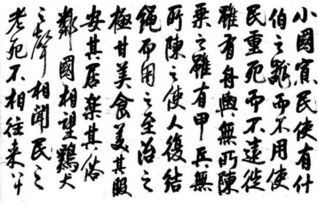 小國寡民使有什
伯之器而不用使
民重死而不遠徙
雖有舟輿無所陳
乘之雖有甲兵無
所陳之使人復結
繩而用之至治之
極甘美食美其服
安其居樂其俗
鄰國相望鷄犬
之聲相聞民之
老死不相往来